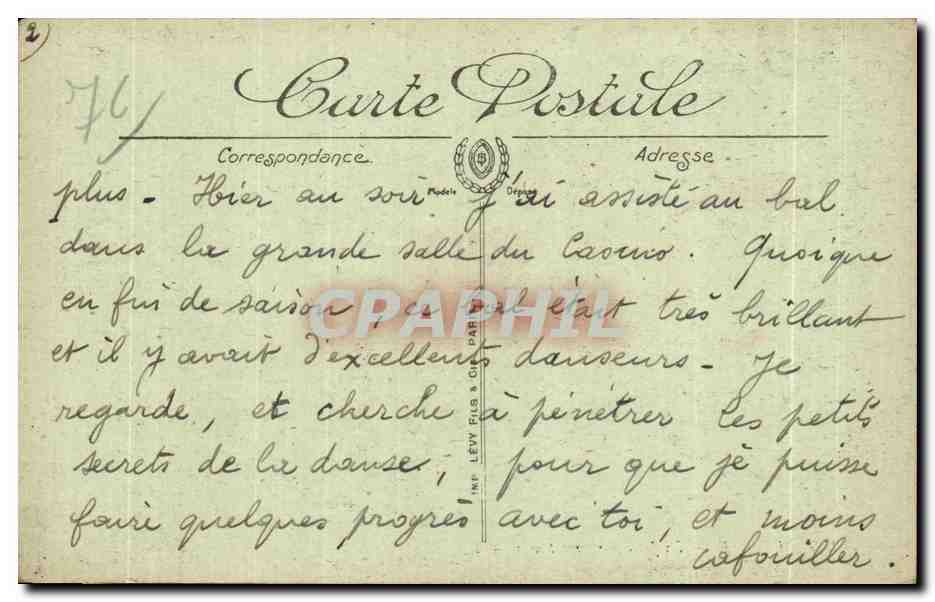 2)
76
Carte Postale
Correspondance
Adresse
Modèle Déposé
plus - Hier au soir j'ai assisté au bal
dans la grande salle du Casino. Quoique
en fin de saison, ce bal était très brillant
et il y avait d'excellents danseurs - Je
regarde, et cherche à pénétrer les petits
secrets de la danse, pour que je puisse
faire quelques progrès avec toi, et moins
cafouiller.
IMP. LÉVY FILS & Cie PARIS
CPAPHIL